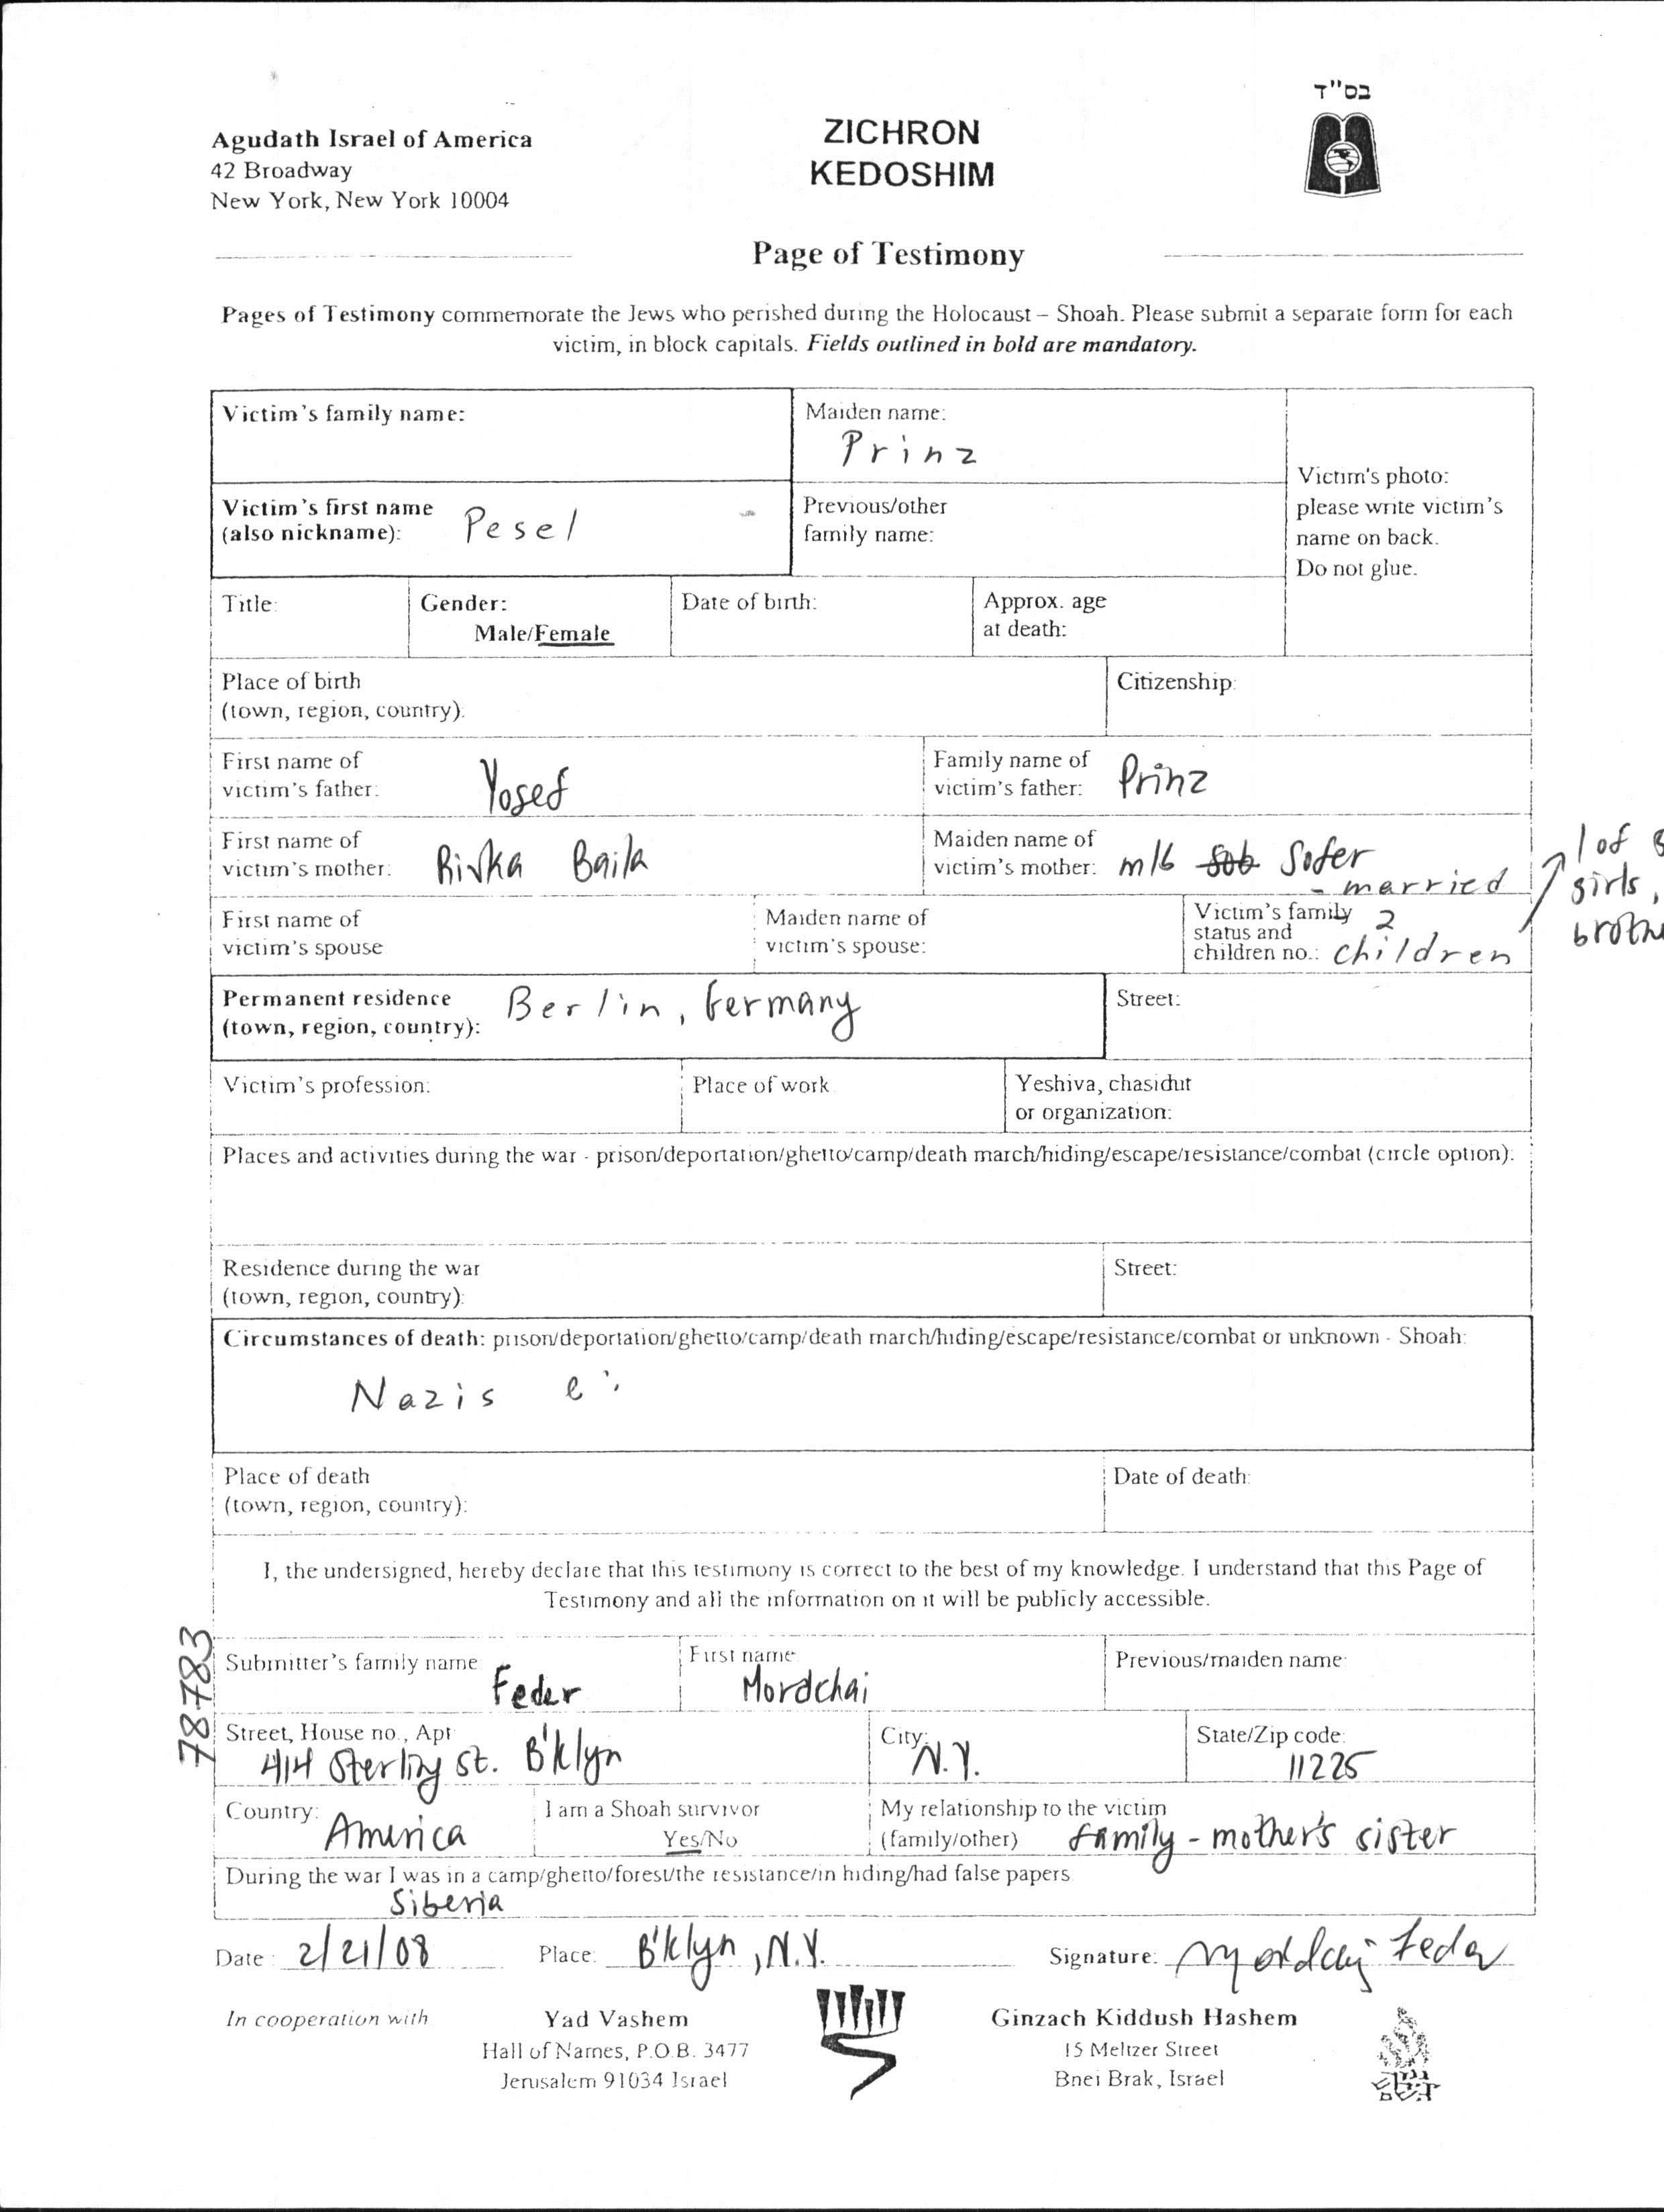 בס"ד
Agudath Israel of America
42 Broadway
New York, New York 10004
ZICHRON
KEDOSHIM
Page of Testimony
Pages of Testimony commemorate the Jews who perished during the Holocaust – Shoah. Please submit a separate form for each
victim, in block capitals. Fields outlined in bold are mandatory.
Victim's family name:
Maiden name:
Prinz
Victim's photo:
please write victim's
name on back.
Do not glue.
Victim's first name
(also nickname): Pesel
Previous/other
family name:
Title:
Gender:
Male/Female
Date of birth:
Approx. age
at death:
Place of birth
(town, region, country):
Citizenship:
First name of
victim's father: Yosef
Family name of
victim's father: Prinz
First name of
victim's mother: Rivka Baila
Maiden name of
victim's mother: Sofer
1 of
girls,
First name of
victim's spouse
Maiden name of
victim's spouse:
- married
Victim's family
status and
children no.: 2 children
Permanent residence
(town, region, country): Berlin, Germany
Street:
Victim's profession:
Place of work
Yeshiva, chasidut
or organization:
Places and activities during the war - prison/deportation/ghetto/camp/death march/hiding/escape/resistance/combat (circle option):
Residence during the war
(town, region, country):
Street:
Circumstances of death: prison/deportation/ghetto/camp/death march/hiding/escape/resistance/combat or unknown - Shoah:
Nazis
Place of death
(town, region, country):
Date of death:
I, the undersigned, hereby declare that this testimony is correct to the best of my knowledge. I understand that this Page of
Testimony and all the information on it will be publicly accessible.
78783
Submitter's family name Feder
First name Mordchai
Previous/maiden name:
Street, House no., Apt
414 Sterling St. B'klyn
City: N.Y.
State/Zip code:
11225
Country: America
I am a Shoah survivor
Yes/No
My relationship to the victim
(family/other) family - mother's sister
During the war I was in a camp/ghetto/forest/the resistance/in hiding/had false papers
Siberia
Date: 2/21/08 Place: B'klyn, N.Y. Signature: Mordchai Feder
In cooperation with
Yad Vashem
Hall of Names, P.O.B. 3477
Jerusalem 91034 Israel
Ginzach Kiddush Hashem
15 Meltzer Street
Bnei Brak, Israel